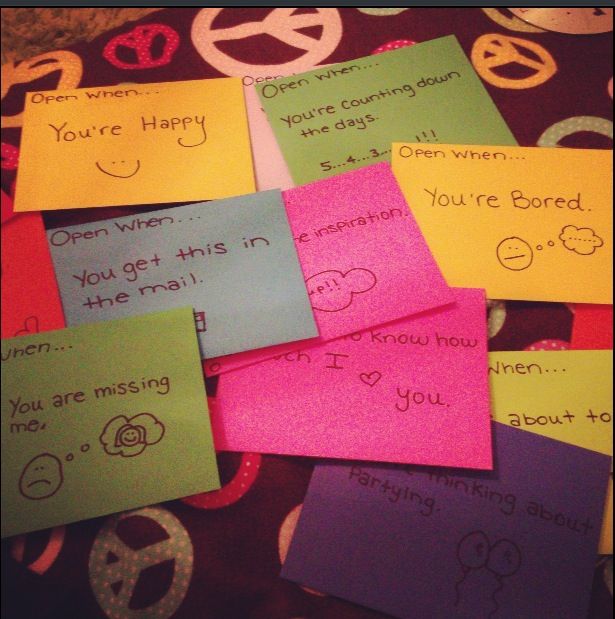 Open when...
You're Happy
Open
Open when...
You're counting down
the days.
5...4...3...!!!
Open when...
You're Bored.
Open When...
You get this in
the mail.
e inspiration.
up!!
when...
You are missing
me.
o know how
ch I
you.
When...
about to
thinking about
Partying.